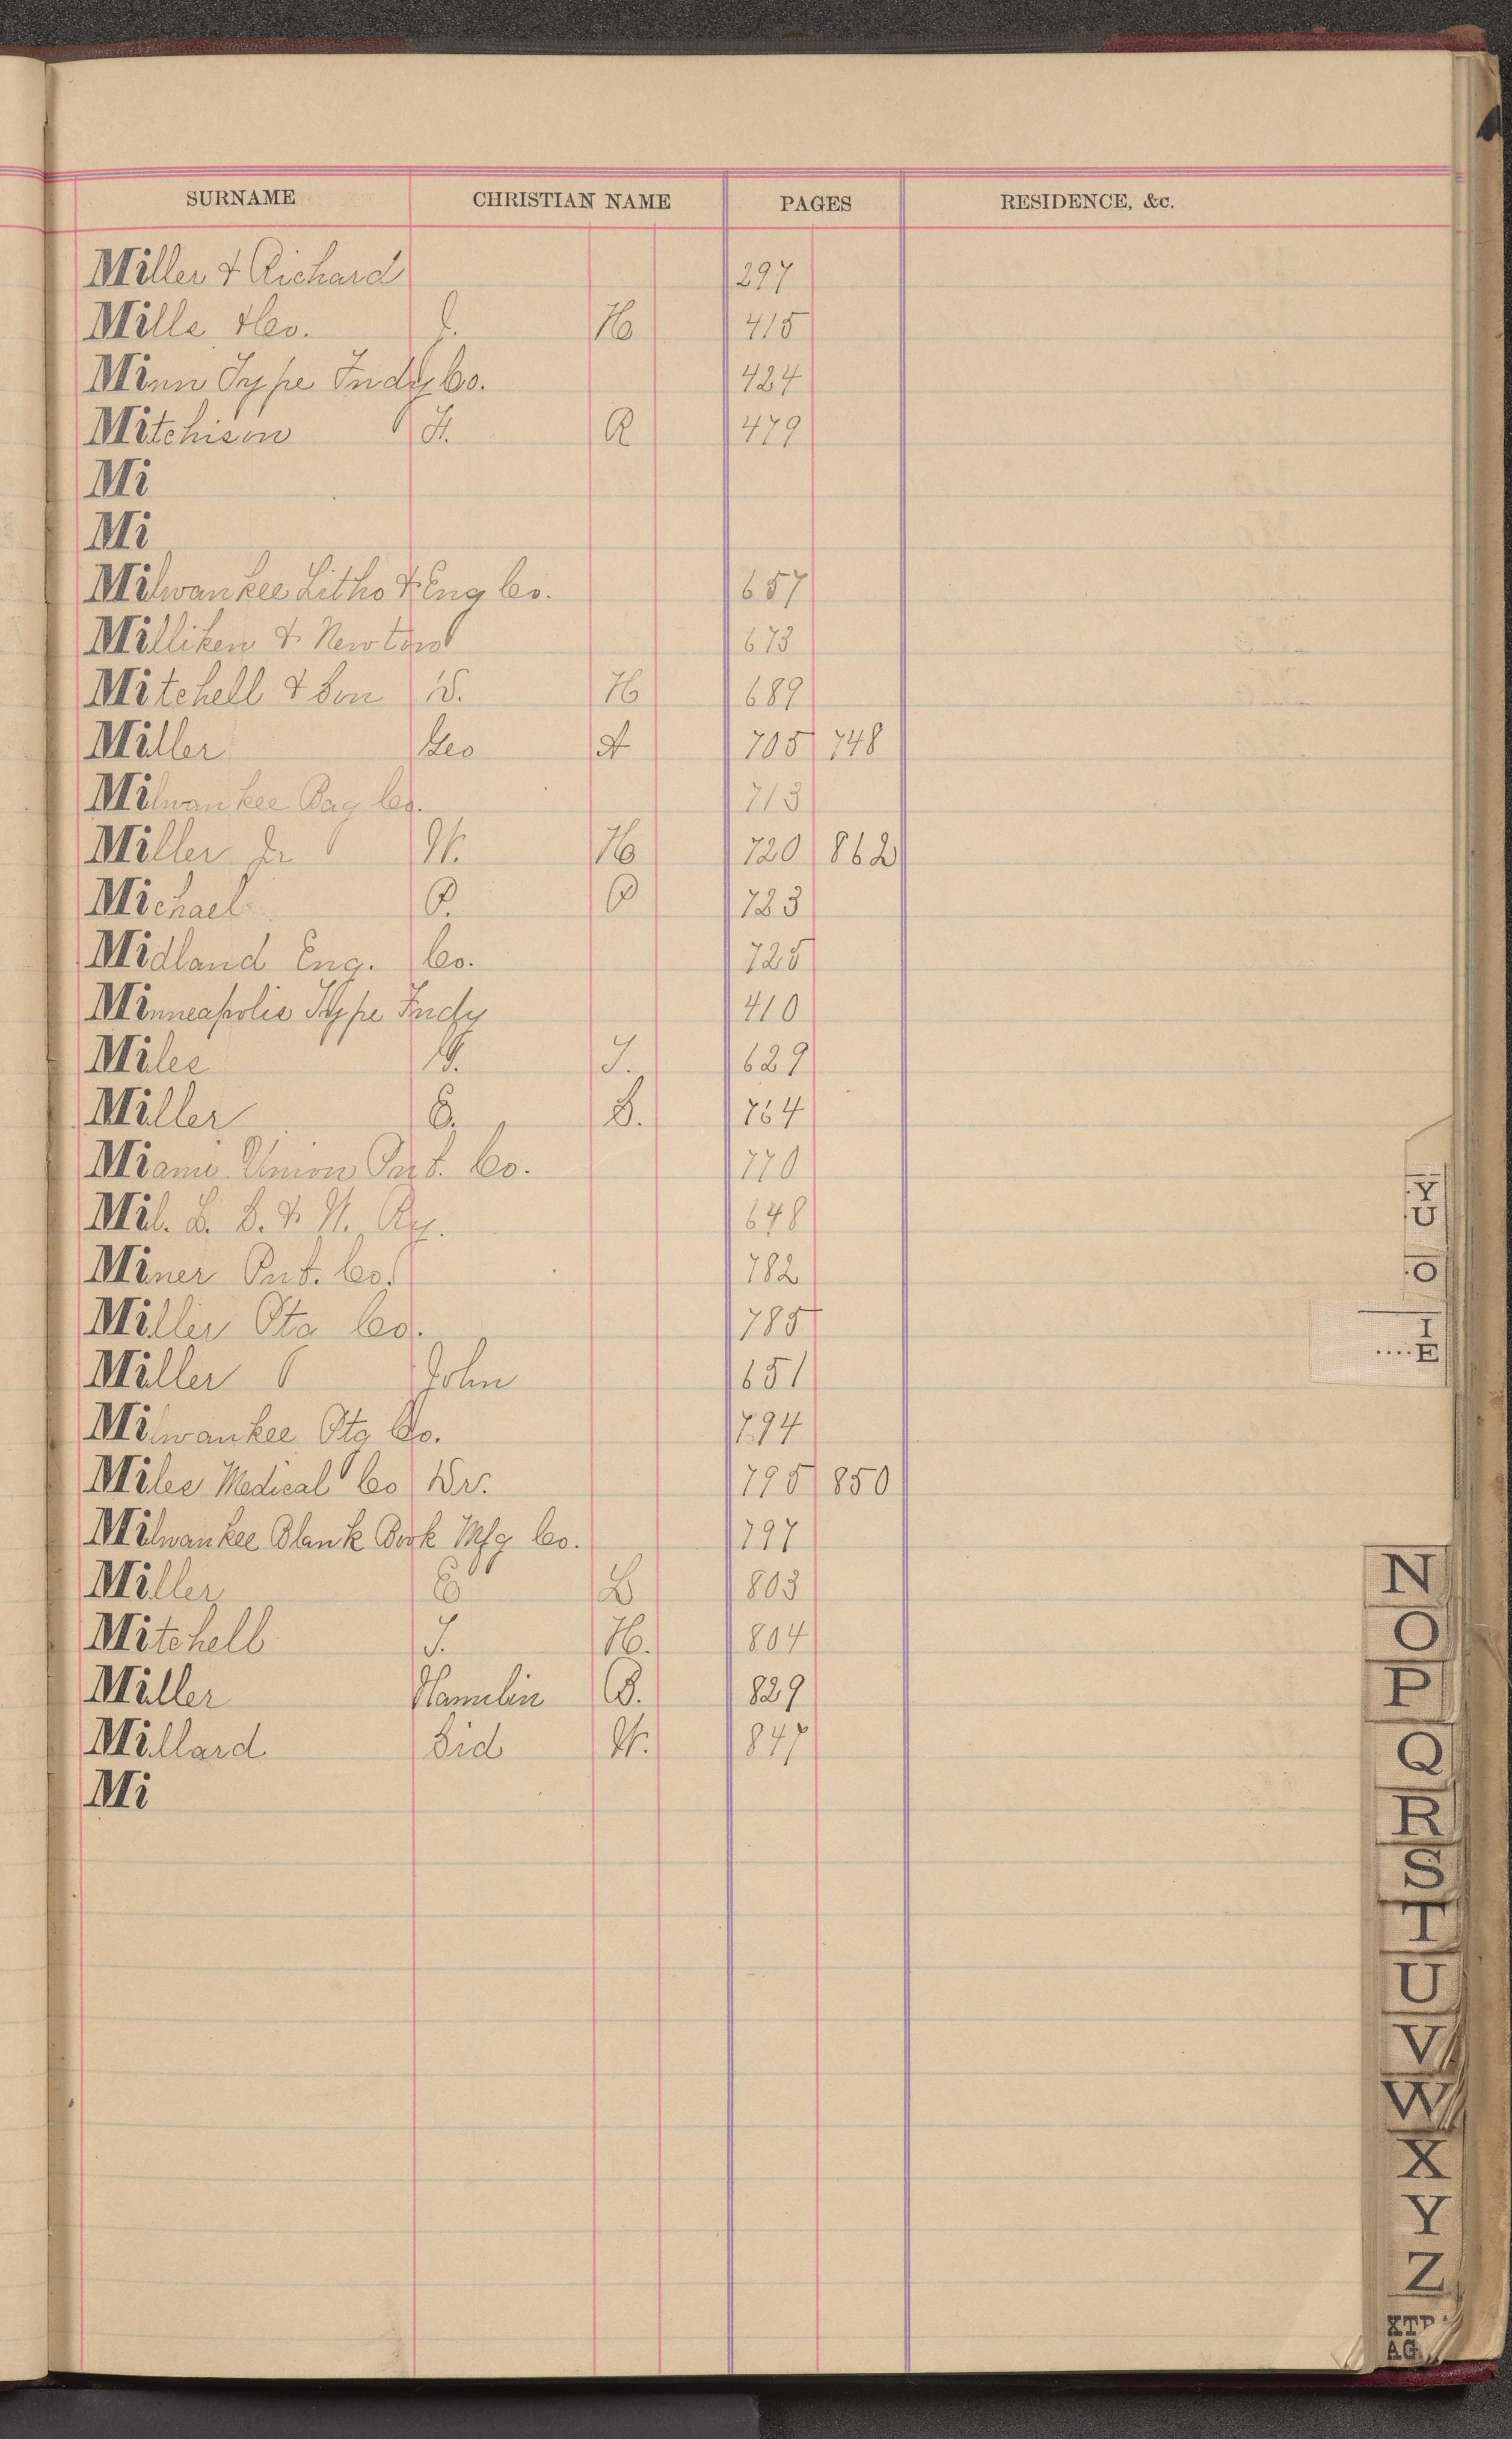 SURNAME CHRISTIAN NAME PAGES RESIDENCE, &c.
Miller & Richard 297
Mills &Co. J. H 415
Minn Type Fndy Co. 424
Mitchison F. R 479
Mi
Mi
Milwaukee Litho & Eng Co. 657
Milliken & Newton 673
Mitchell & Son W. H 689
Miller Geo A 705 748
Milwaukee Bag Co. 713
Miller Jr W. H 720 862
Michael P. P 723
Midland Eng. Co. 725
Minneapolis Type Fndy 410
Miles J. 629
Miller C. S. 764
Miami Union Pub. Co. 770
Mil. L. S. & W. Ry. 648
Miner Pub. Co. 782
Miller Ptg Co. 785
Miller John 651
Milwaukee Ptg Co. 794
Miles Medical Co Dr. 795 850
Milwaukee Blank Book Mfg Co. 797
Miller C L 803
Mitchell J. H. 804
Miller Hamelin B. 829
Millard Sid W. 847
Mi
Y
U
O
I
E
N
O
P
Q
R
S
T
U
V
W
X
Y
Z